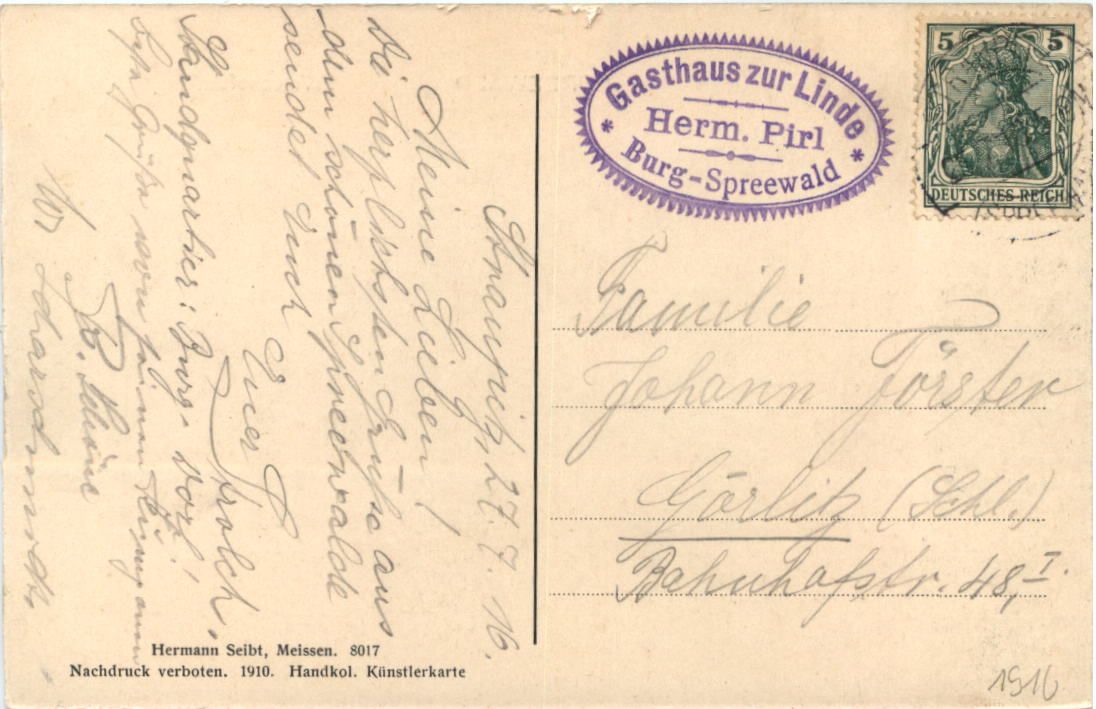 Straupitz, 27. 7. 16.
Meine Lieben!
Die herzlichsten Grüße aus
dem schönen Spreewalde
sendet Euch
Euer
Standquartier: Burg. vorz!
Beste Grüße von
W.
Gasthaus zur Linde
* Herm. Pirl *
Burg-Spreewald
5 5
DEUTSCHES REICH
Familie
Johann Förster
Görlitz (Schl.)
Bahnhofstr. 48, I.
Hermann Seibt, Meissen. 8017
Nachdruck verboten. 1910. Handkol. Künstlerkarte
1916